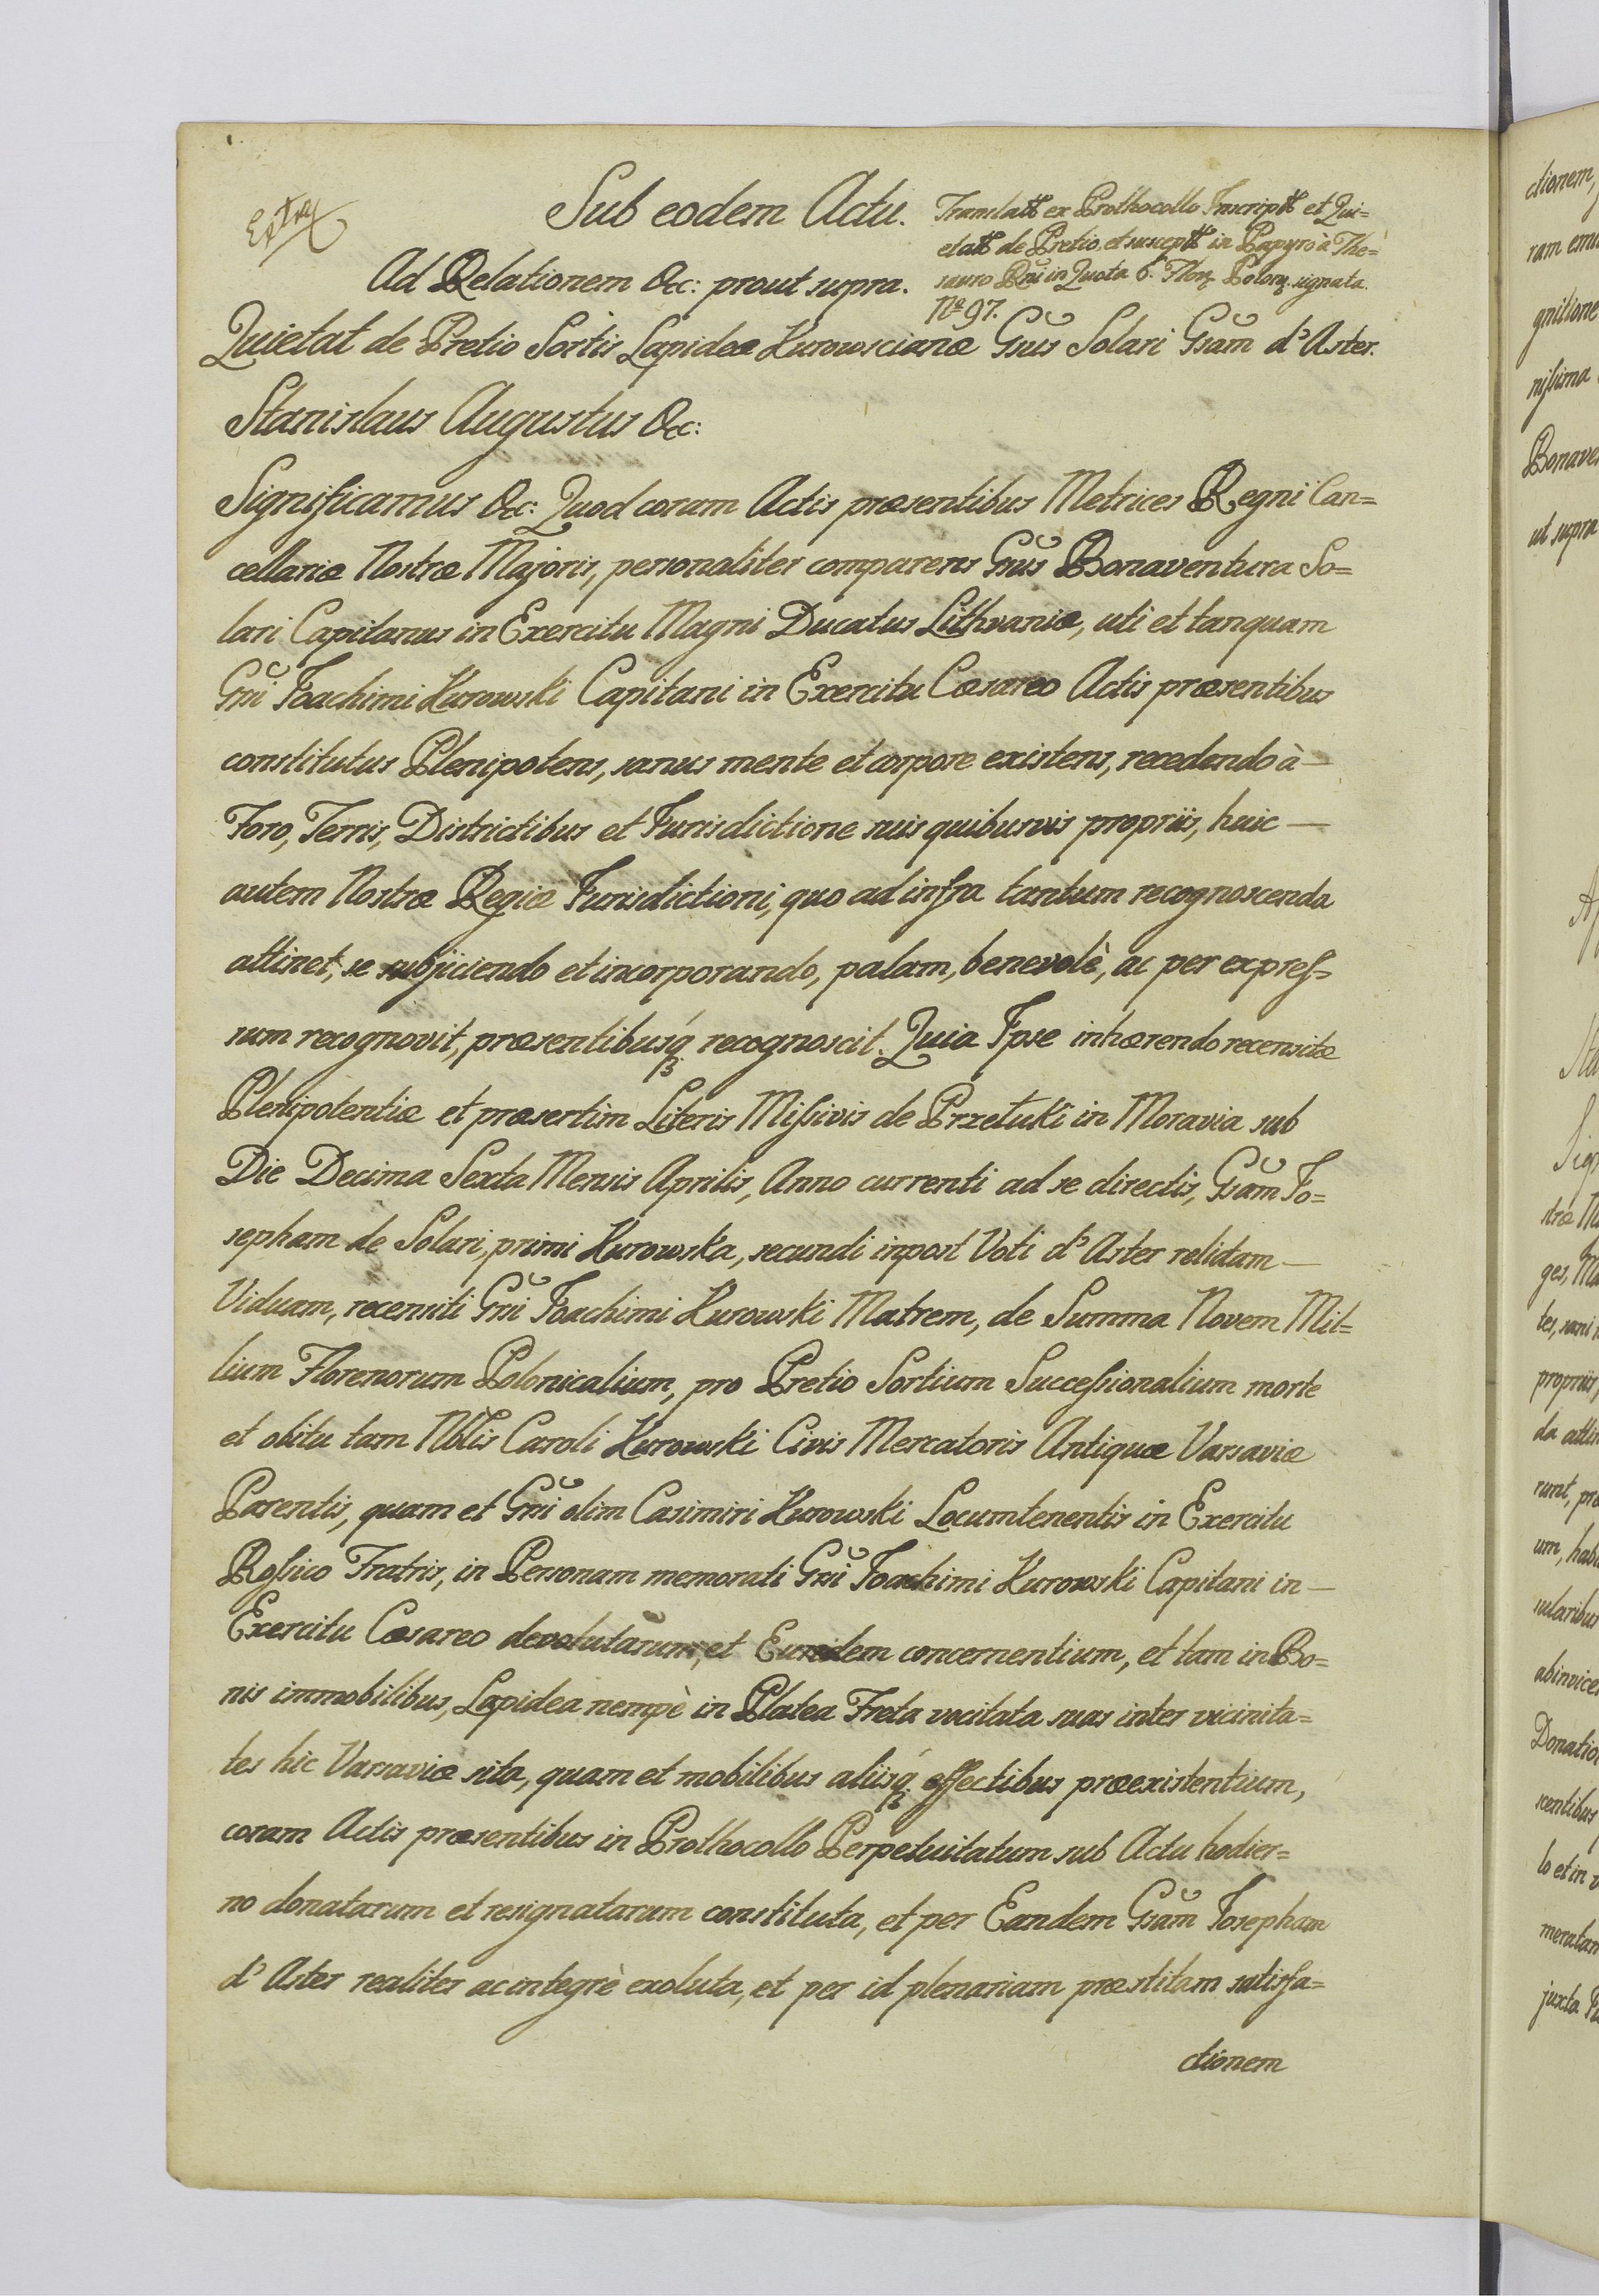 Extrad
Sub eodem Actu.
Translatt ex Prothocollo Inscriptt et Qui=
etatt de Pretio et susceptt in Papyro à The=
sauro Rni in Quota 6. Flor Polon signata.
No 97.
Ad Relationem &c: prout supra.
Quietat de Pretio Sortis Lapideæ Kurowscianæ Gsus Solari Gsam d'Aster.
Stanislaus Augustus &c:
Significamus &c: Quod coram Actis præsentibus Metrices Regni Can=
cellariæ Nostræ Majoris, personaliter comparens Gsus Bonaventura So=
lari Capitanus in Exercitu Magni Ducatus Lithvaniæ, uti et tanquam
Gsi Joachimi Kurowski Capitani in Exercitu Cæsareo Actis præsentibus
constitutus Plenipotens, sanus mente et corpore existens, recedendo à —
Foro, Terris, Districtibus et Jurisdictione suis quibusvis propriis, huic —
autem Nostræ Regiæ Jurisdictioni, quo ad infra tantum recognoscenda
attinet, se subjiciendo et incorporando, palam, benevolè, ac per expres=
sum recognovit, præsentibusq́ recognoscit. Quia Ipse inhærendo recensitæ
Plenipotentiæ et præsertim Literis Missivis de Przetuki in Moravia sub
Die Decima Sexta Mensis Aprilis, Anno currenti ad se directis, Gsam Jo=
sepham de Solari, primi Kurowska, secundi inpost Voti d'Aster relictam —
Viduam, recensiti Gsi Joachimi Kurowski Matrem, de Summa Novem Mil=
lium Florenorum Polonicalium, pro Pretio Sortium Successionalium morte
et obitu tam Nblis Caroli Kurowski Civis Mercatoris Antiquæ Varsaviæ
Parentis, quam et Gsi olim Casimiri Kurowski Locumtenentis in Exercitu
Rossico Fratris, in Personam memorati Gsi Joachimi Kurowski Capitani in —
Exercitu Cæsareo devolutarum, et Eundem concernentium, et tam in Bo=
nis immobilibus, Lapidea nempè in Platea Freta vocitata suas inter vicinita=
tes hic Varsaviæ sita, quam et mobilibus aliisq́ effectibus præexistentium,
coram Actis præsentibus in Prothocollo Perpetuitatum sub Actu hodier=
no donatarum et resignatarum constituta, et per Eandem Gsam Josepham
d'Aster realiter ac integrè exoluta, et per id plenariam præstitam satisfa=
ctionem
ctionem,
gnitione
nissima
ut supra
ges,
propriis,
da
runt,
um,
Donatio
lo et in
juxta